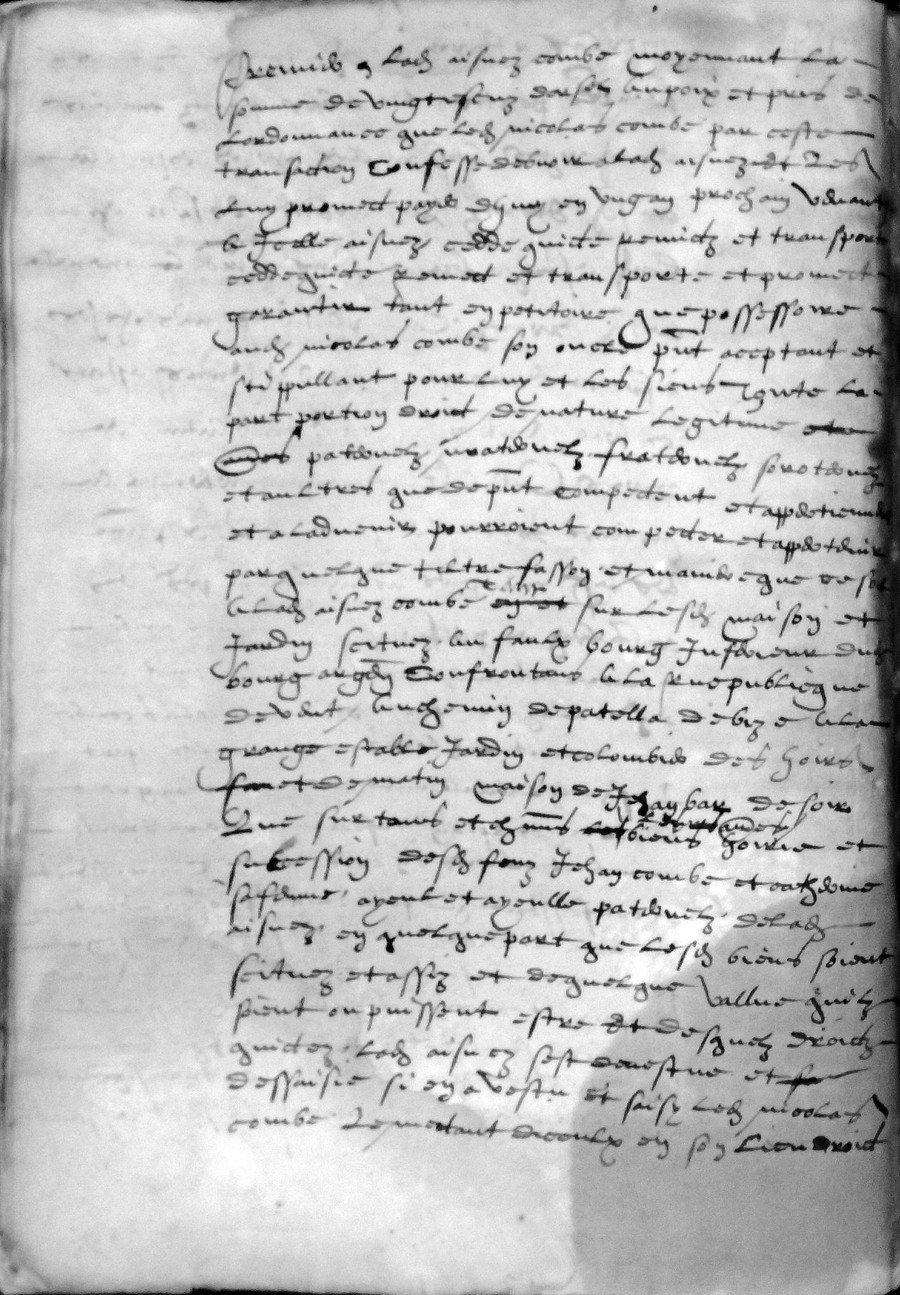 premier q ladt aisnez combe moyennant la
somme de vingt escuz dor sol au poix et pris de
lordonnance que ledt nicolas combe par ceste
transaction confesse debvoir a ladt aisnez et les
luy promect payer dhuy en ung an prochain venant
& Icelle aisnez cedde quicte remictz et transporte
cedde quicte remect et transporte et promect
garantir tant en petitoire que possessoire
audt nicolas combe son oncle pnt aceptant et
stippullant pour luy et les siens toute la
part portion droict de nature legitime
paternelz maternelz fraternelz sorornelz
et aultres que de pnt compectent et appertiennent
et a ladvenir pourroient compecter et appertenir
par quelque tiltre fasson et maniere que ce soit
a ladt aisnez combe sur lesdt maison et
Jardin scituez au faulx bourg Inferieur dudt
bourg argen Confrontans a la rue publicque
de vent au chemin de patella de bize a la
grange estable Jardin et colombier des hoirs
faret de matin maison de Jehan bar de soir
Que sur tous et chuns biens hoirie et
subcession desdt feuz Jehan combe et catherine
sa femme ayeul et ayeulle paternelz de ladt
aisnez en quelque part que lesdt biens soient
scituez et assiz et de quelque vallue quilz
sient ou puissent estre et desquelz droictz
quictez ladt aisnez sest devestue et
dessaisie si en a vestu et saisy ledt nicolas
combe le mectant diceulx en son lieu droict